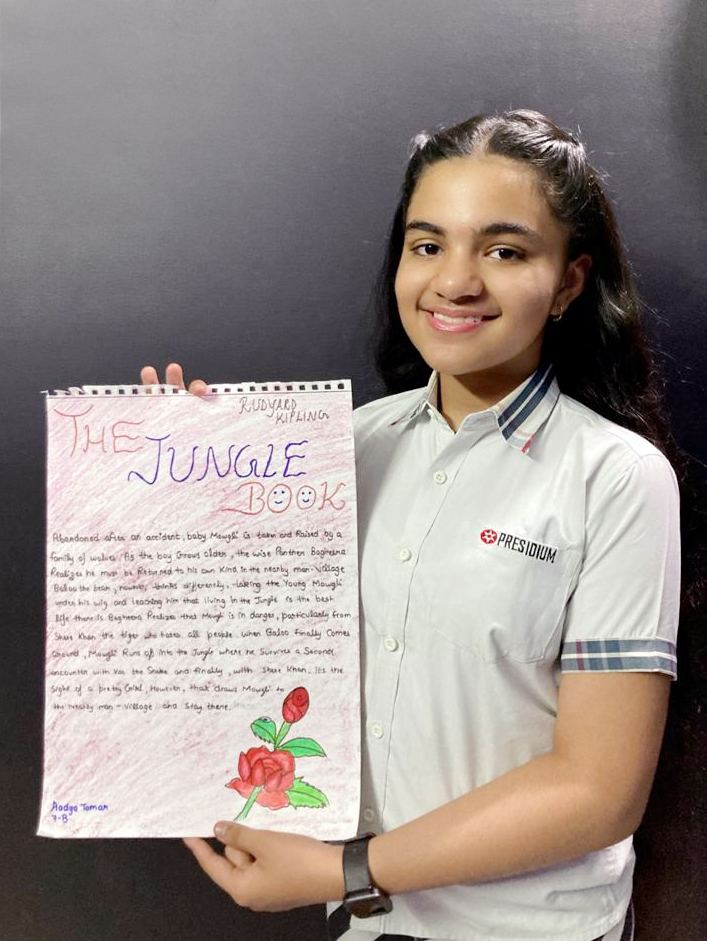 RUDYARD
KIPLING
THE
JUNGLE
BOOK
Abandoned after an accident, baby Mowgli is taken and Raised by a
family of wolves. As the boy Grows older, the wise Panther Bagheera
Realizes he must be Returned to his own Kind in the nearby man-Village
Baloo the bear, however thinks differently, taking the Young Mowgli
under his wig and teaching him that living in the Jungle is the best
life there is Bagheera Realizes that Mowgli is in danger, particularly from
Shere Khan the tiger who hates all people. When Baloo finally Comes
around, Mowgli Runs off into the Jungle where he Survives a Second
encounter with Kaa the Snake and finally, with Shere Khan. Its the
sight of a pretty Girl, However, that draws Mowgli to
the nearby man-Village and Stay there.
Aadya Tomar
7-B
PRESIDIUM